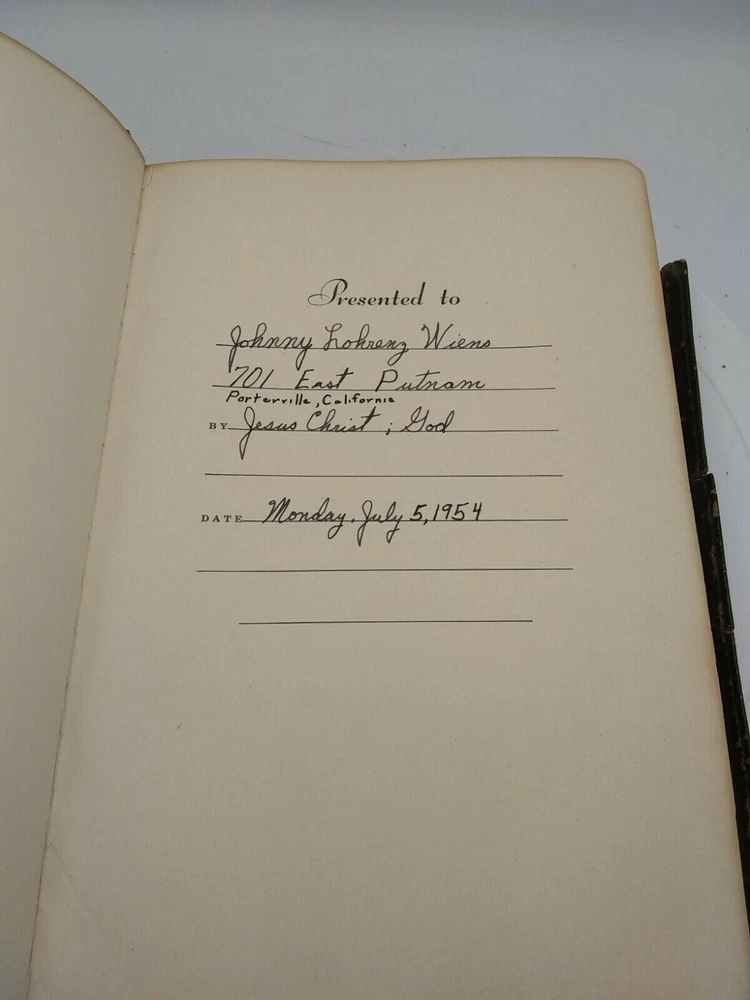 Presented to
Johnny Lohrenz Wiens
701 East Putnam
Porterville, California
BY Jesus Christ ; God
DATE Monday, July 5, 1954